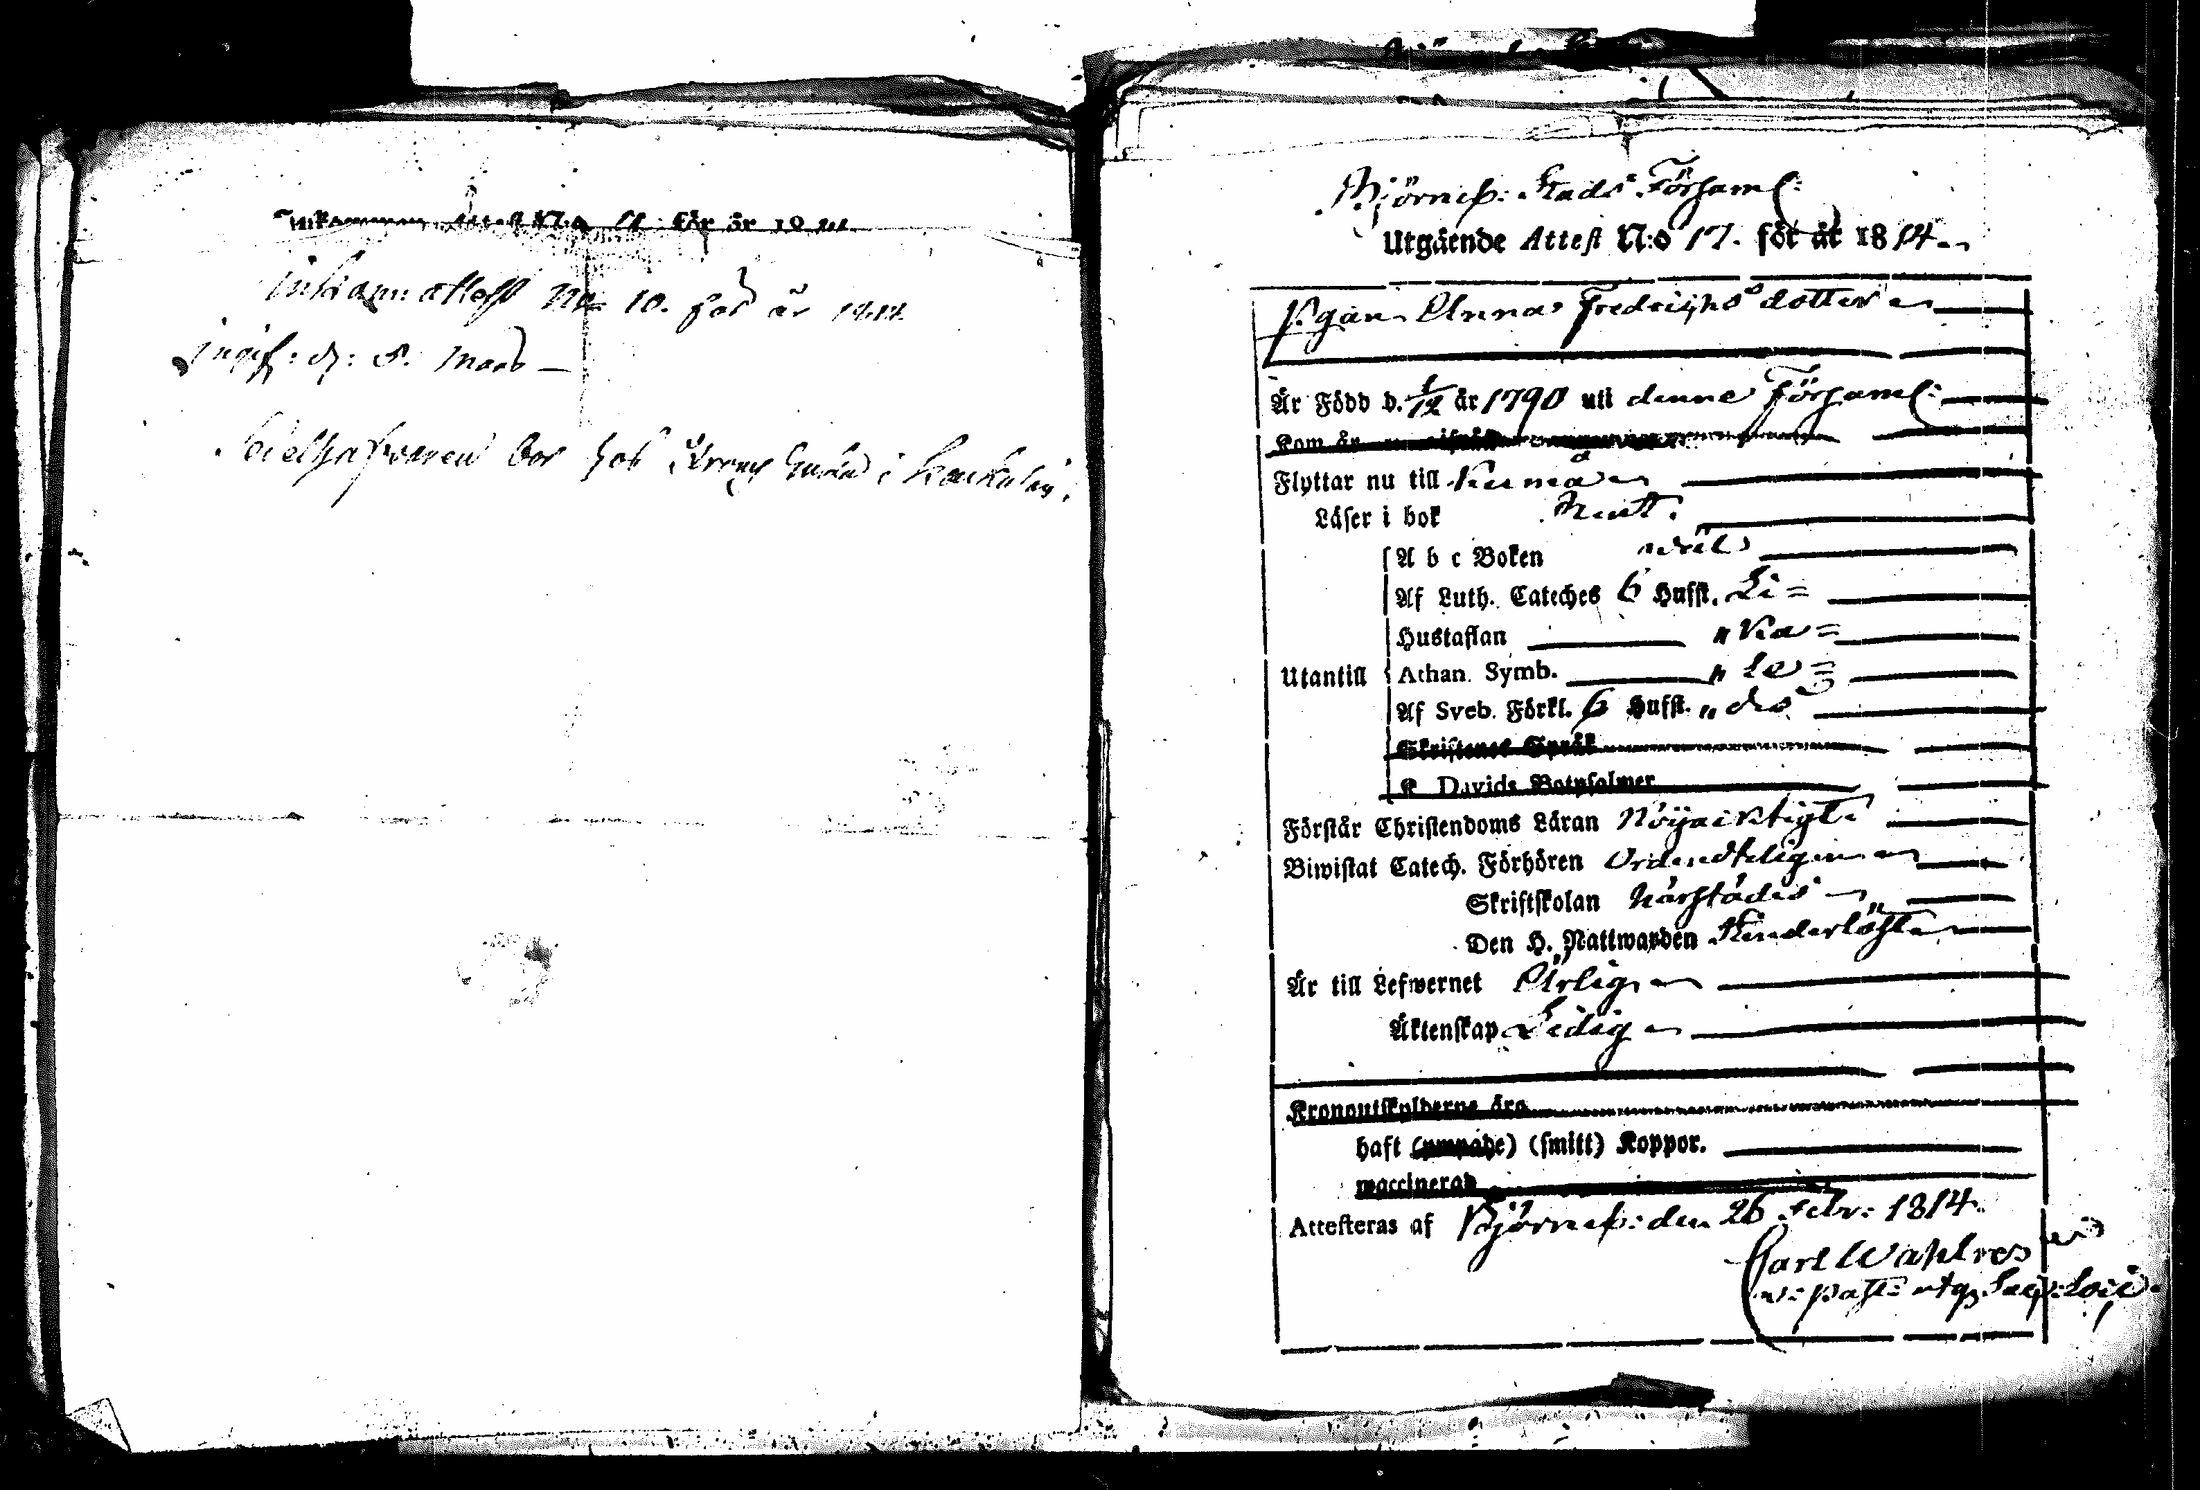 Inkommen Attest N:o 11 för år 18
Inkom: attest No 10. för år 1814
Ingif: d: 8. Mars
bor hos i
Björneb: Stads Församl:
Utgående Attest N:o 17. för år 1814.
Pigan Anna Fredrichs dotter
Är Född d. 1/12 år 1790 uti denne Församl:
Kom år
Flyttar nu till Kumå
Läser i bok Rent.
A b c Boken wäl
Af Luth. Cateches 6 Hufst. Li=
Hustaflan " ka=
Utantill Athan. Symb. " le=
Af Sveb. Förkl. 6 Hufst. " des
Skriftenes Språk
K. Davids Botpsalmer
Förstår Christendoms Läran Nöijacktigt.
Biwistat Catech. Förhören Ordendteligen
Skriftskolan härstädes
Den H. Nattwarden
Är till Lefwernet Ärlig
Äktenskap Ledig
Kronoutskylderne äro
haft (ympade) (smitt) Koppor.
waccinerad
Attesteras af Björneb: den 26 Febr: 1814.
Carl Wahlroos
v: Past: